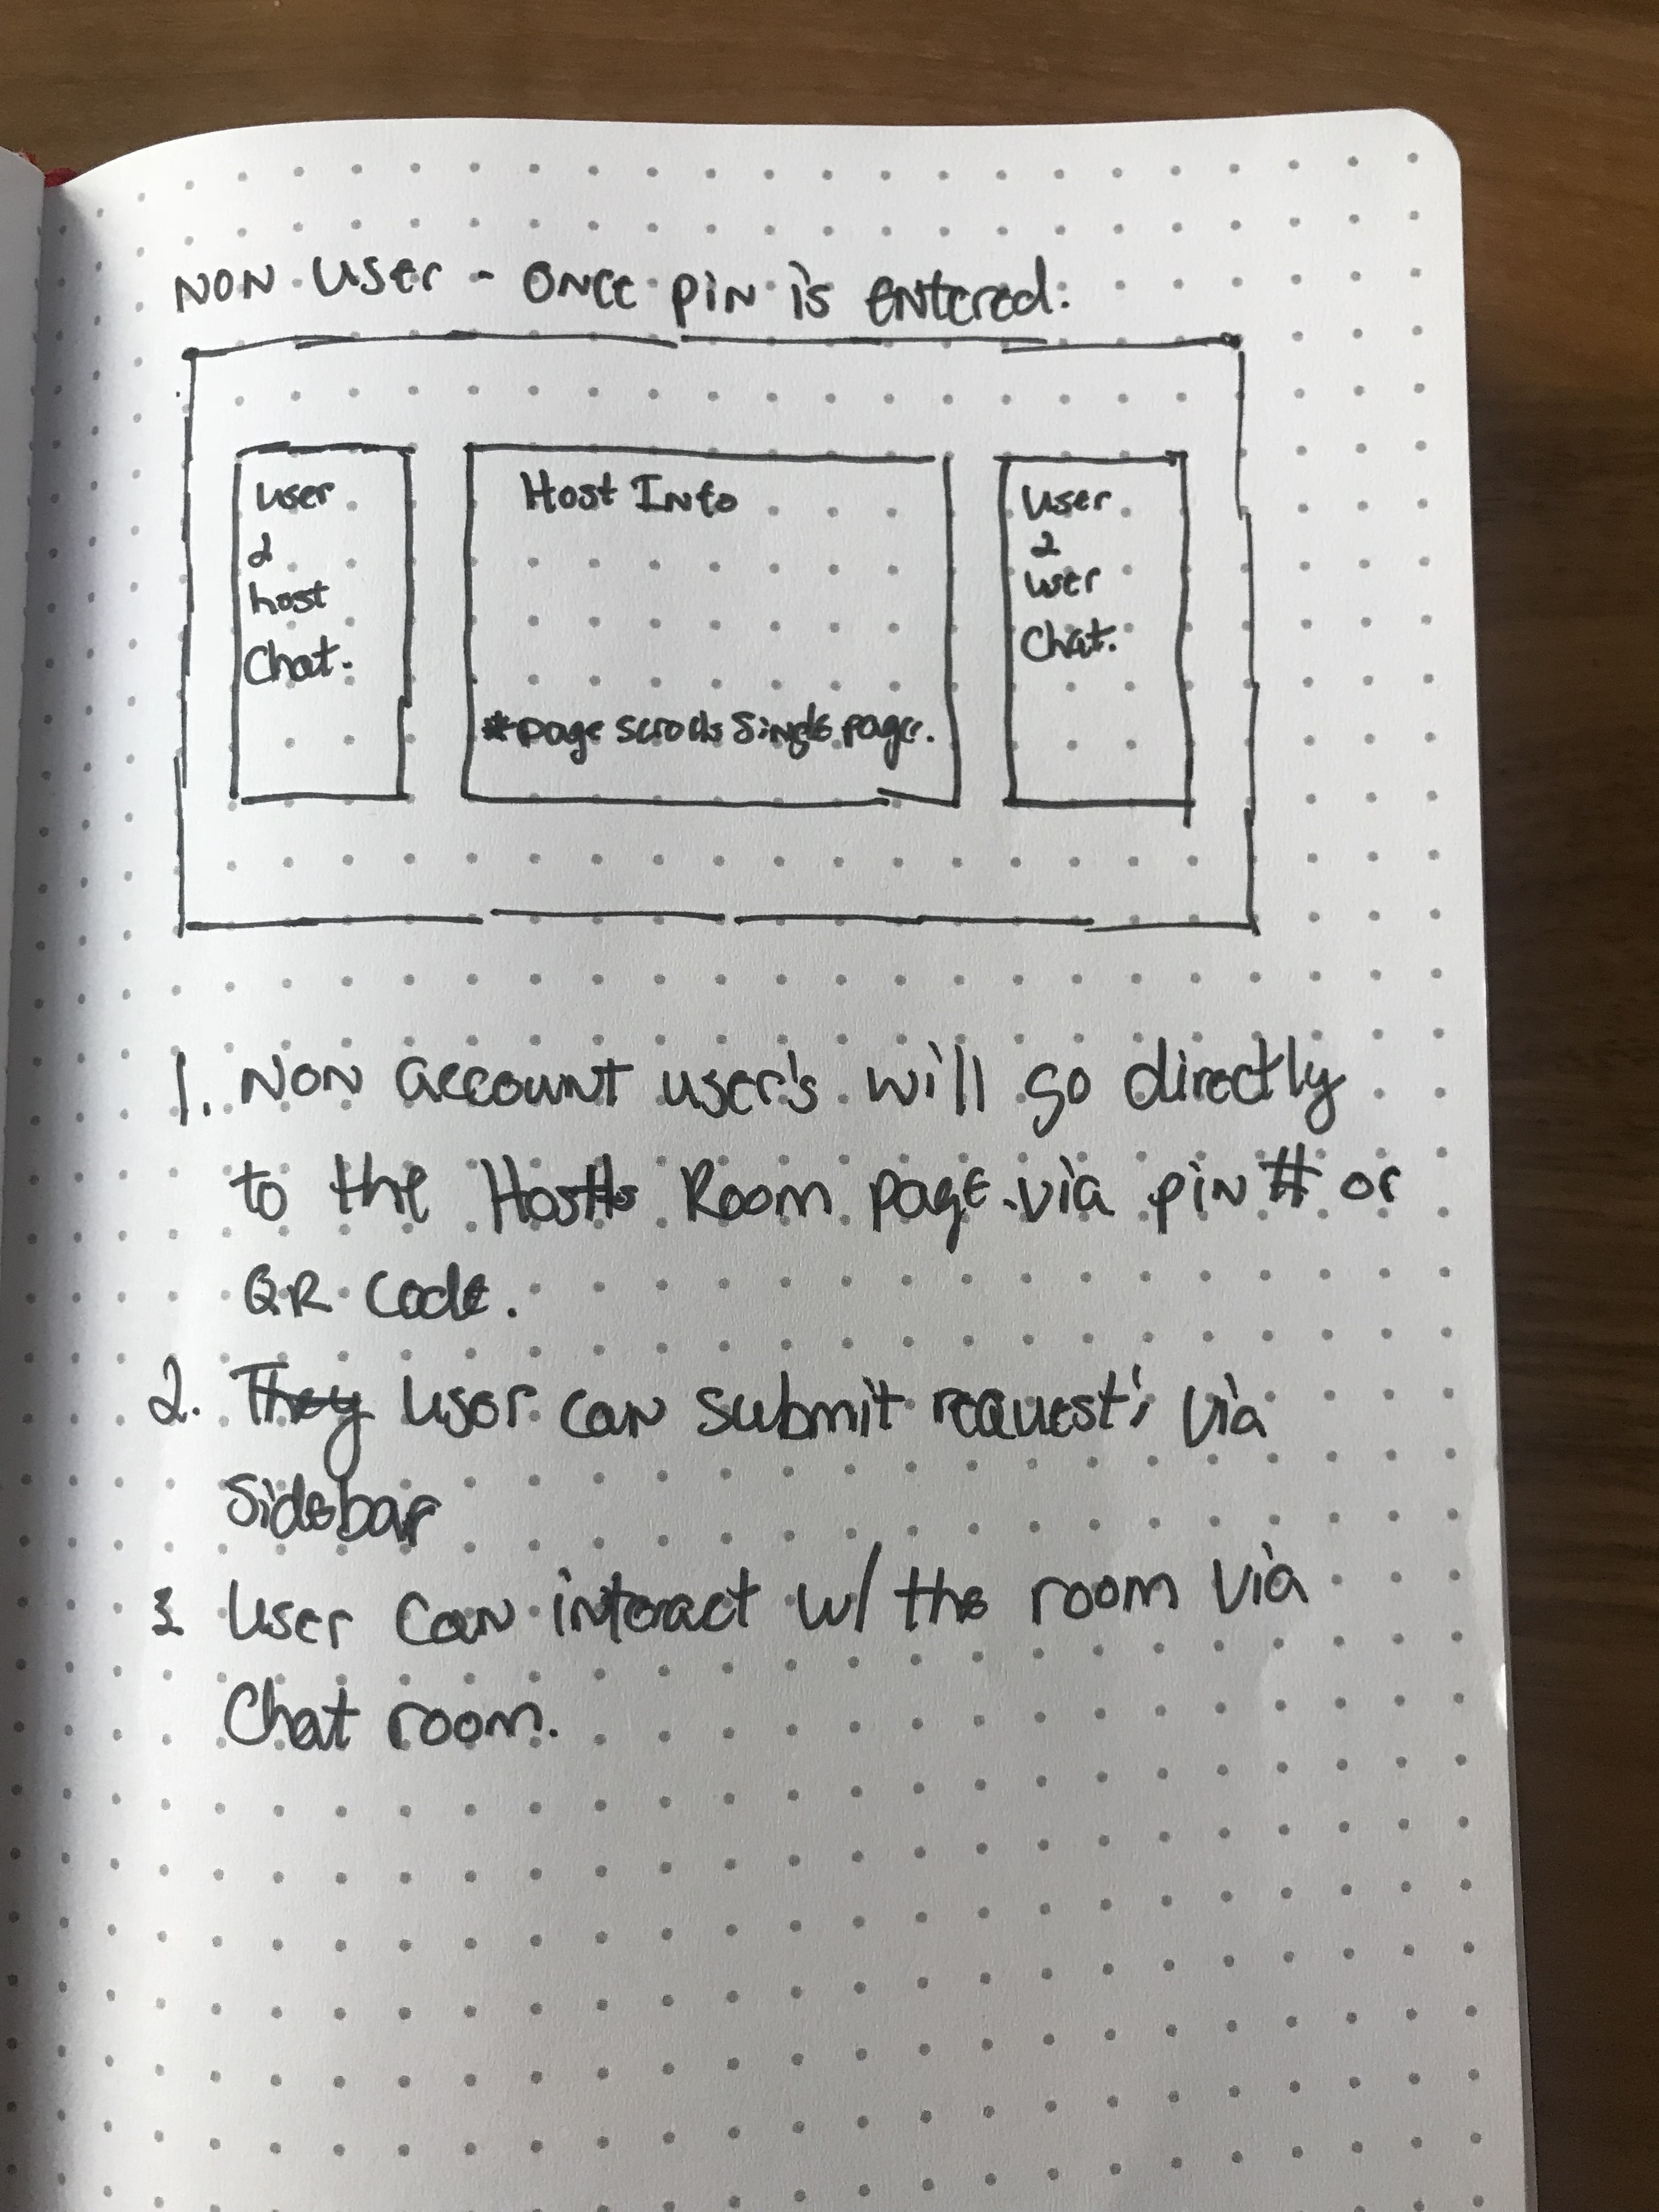 NON User - Once pin is entered:
User
2
host
Chat.
Host Info
*page scrolls single page.
User
2
user
Chat.
1. Non account user's will go directly
to the Hosts Room page via pin # or
QR code.
2. They User can submit request's via
Sidebar
3. User can interact w/ the room via
Chat room.